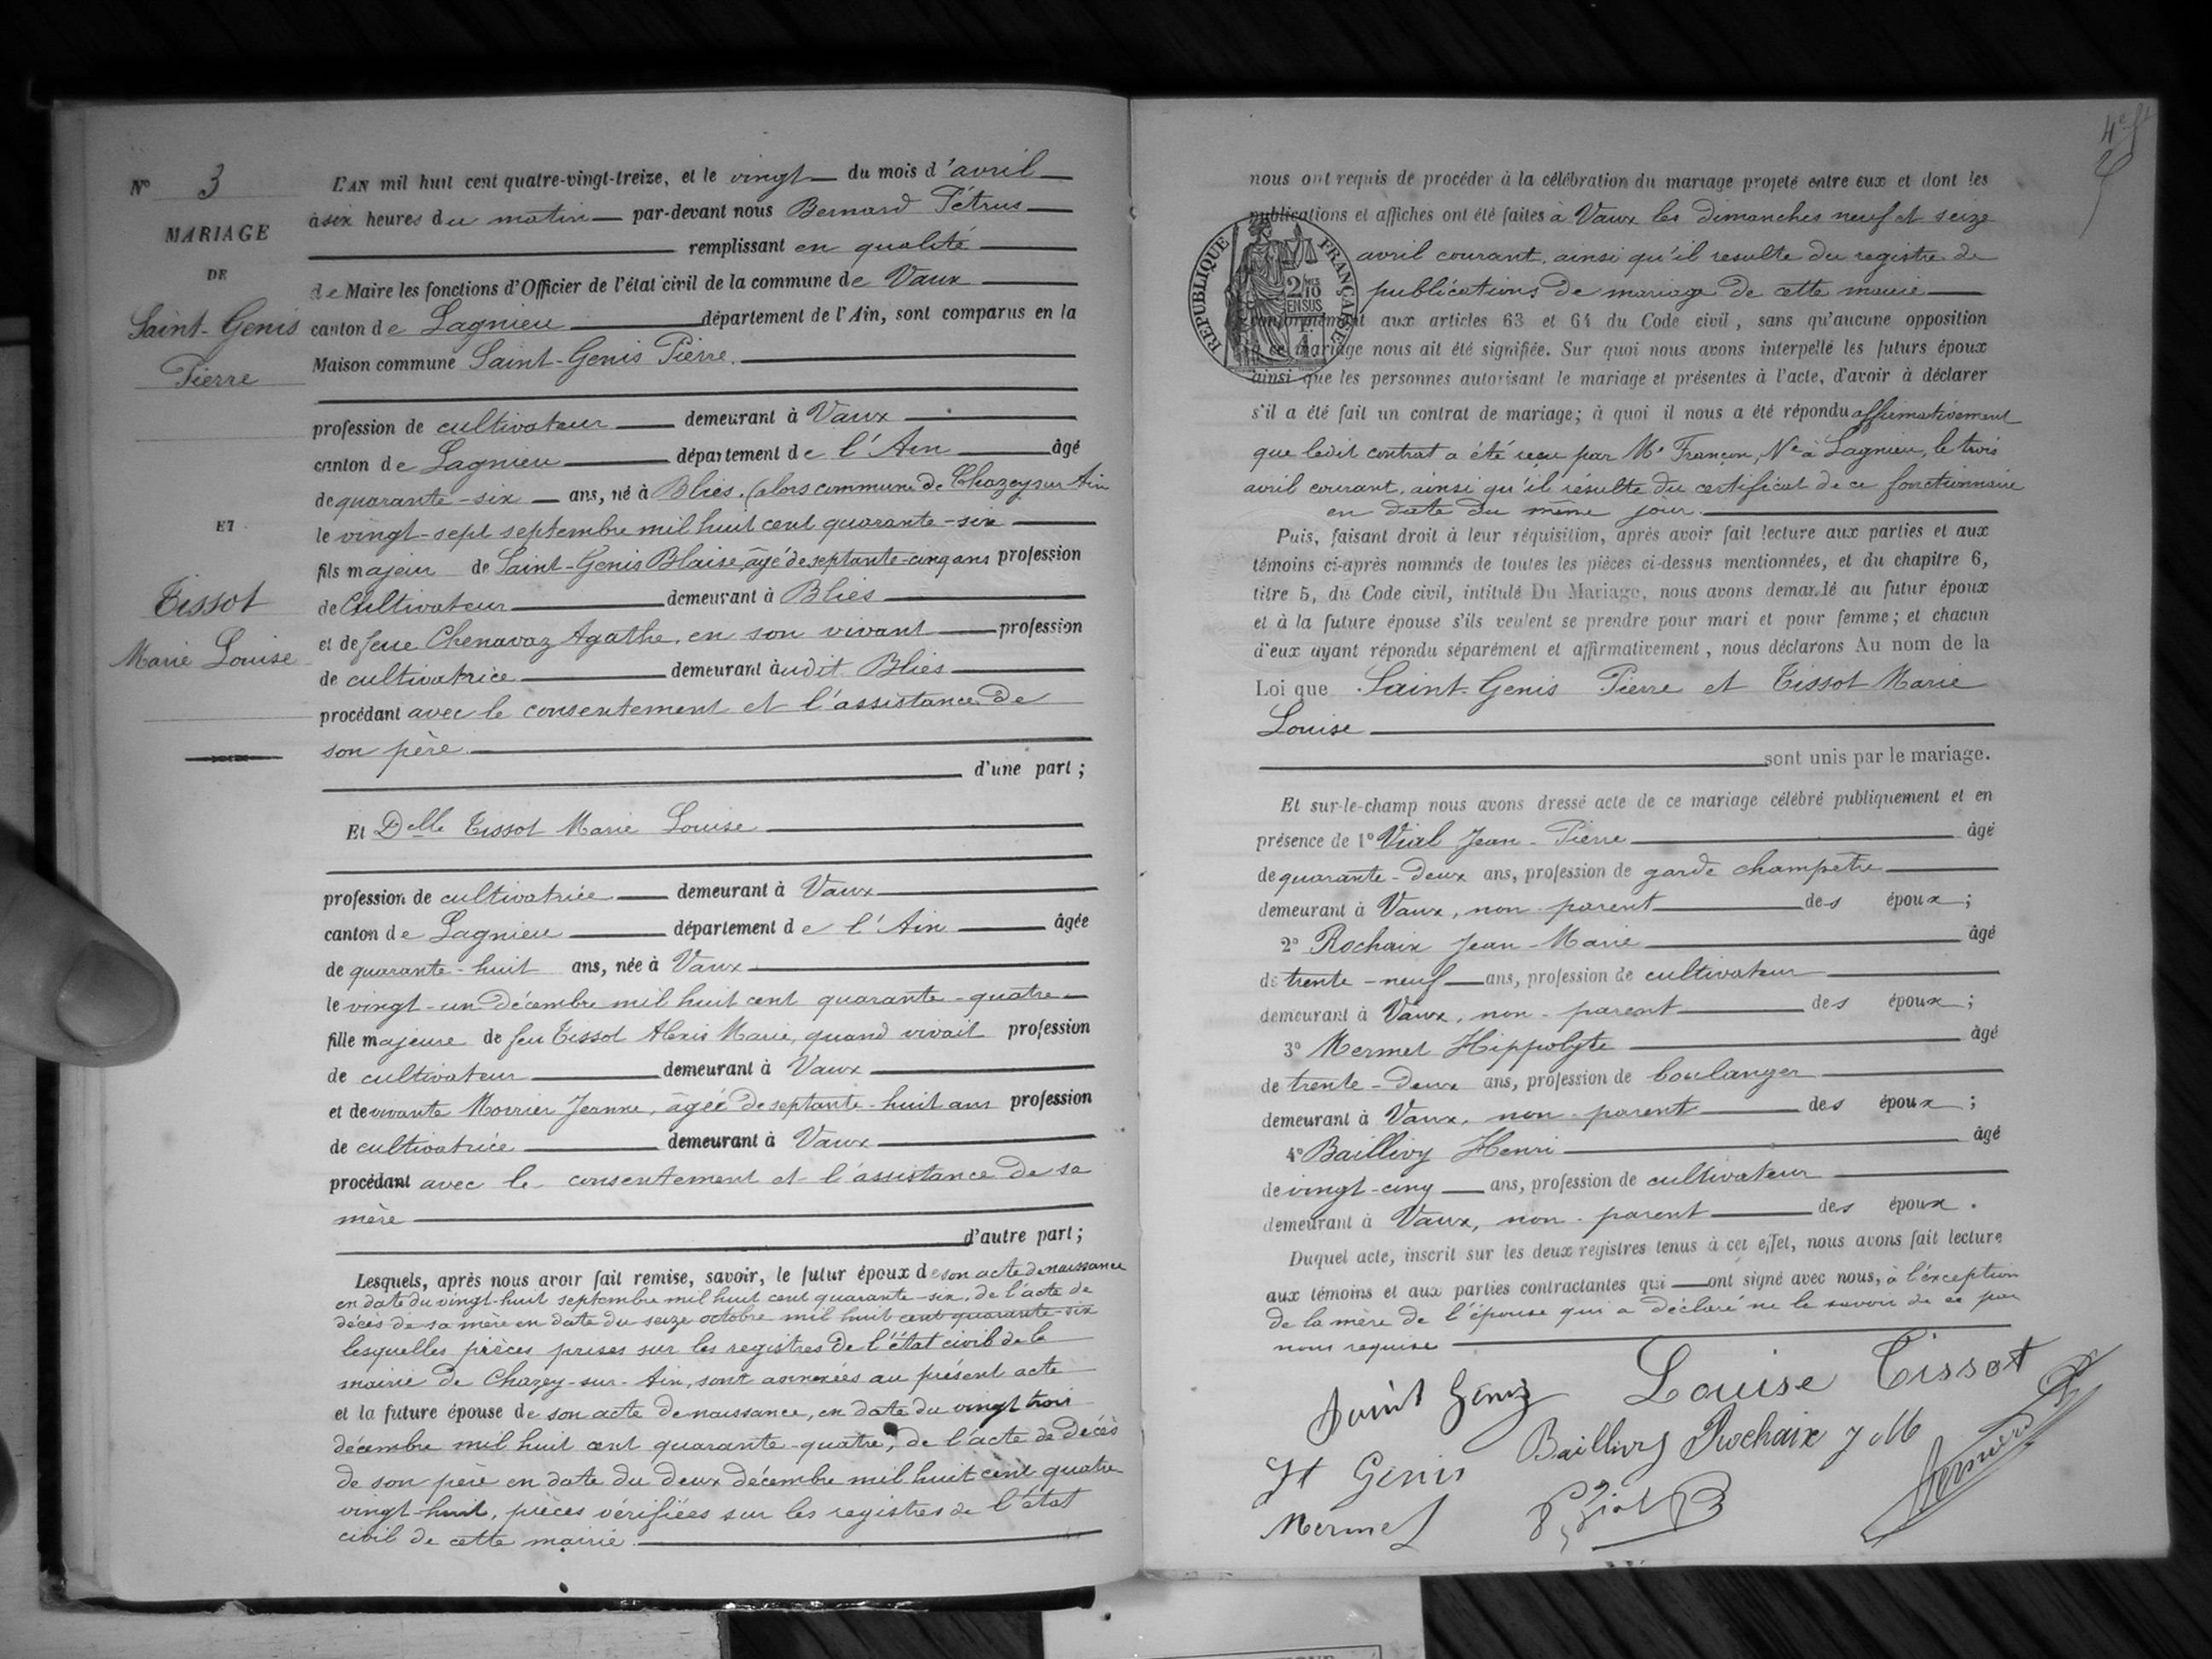 N° 3
MARIAGE
DE
Saint-Genis
Pierre
ET
Tissot
Marie Louise
L'AN mil huit cent quatre-vingt-treize, et le vingt du mois d'avril
à six heures du matin par-devant nous Bernard Pétrus
remplissant en qualité
de Maire les fonctions d'Officier de l'état civil de la commune de Vaux
canton de Lagnieu département de l'Ain, sont comparus en la
Maison commune Saint-Genis Pierre.
profession de cultivateur demeurant à Vaux
canton de Lagnieu département de l'Ain âgé
de quarante-six ans, né à Blies, (alors commune de Chazey sur Ain
le vingt-sept septembre mil huit cent quarante-six
fils majeur de Saint-Genis Blaise, âgé de septante-cinq ans profession
de Cultivateur demeurant à Blies
et de feue Chenavaz Agathe, en son vivant profession
de cultivatrice demeurant àudit Blies
procédant avec le consentement et l'assistance de
son père.
d'une part;
Et Delle Tissot Marie Louise
profession de cultivatrice demeurant à Vaux
canton de Lagnieu département de l'Ain âgée
de quarante-huit ans, née à Vaux
le vingt-un décembre mil huit cent quarante-quatre
fille majeure de feu Tissot Alexis Marie, quand vivait profession
de cultivateur demeurant à Vaux
et de vivante Morrier Jeanne, âgée de septante-huit ans profession
de cultivatrice demeurant à Vaux
procédant avec le consentement et l'assistance de sa
mère
d'autre part;
Lesquels, après nous avoir fait remise, savoir, le futur époux de son acte de naissance
en date du vingt-huit septembre mil huit cent quarante-six, de l'acte de
décès de sa mère en date du seize octobre mil huit cent quarante-six
lesquelles pièces prises sur les registres de l'état civil de la
mairie de Chazey-sur-Ain, sont annexées au présent acte
et la future épouse de son acte de naissance, en date du vingt trois
décembre mil huit cent quarante-quatre, de l'acte de décès
de son père en date du deux décembre mil huit cent quatre
vingt-huit, pièces vérifiées sur les registres de l'état
civil de cette mairie.
4e
nous ont requis de procéder à la célébration du mariage projeté entre eux et dont les
publications et affiches ont été faites à Vaux les dimanches neuf et seize
avril courant, ainsi qu'il resulte du registre de
publications de mariage de cette mairie
RÉPUBLIQUE FRANÇAISE
2/10
EN SUS
conformément aux articles 63 et 64 du Code civil, sans qu'aucune opposition
à ce mariage nous ait été signifiée. Sur quoi nous avons interpellé les futurs époux
ainsi que les personnes autorisant le mariage et présentes à l'acte, d'avoir à déclarer
s'il a été fait un contrat de mariage; à quoi il nous a été répondu affirmativement
que ledit contrat a été reçu par Me Françon, Nre à Lagnieu, le trois
avril courant, ainsi qu'il résulte du certificat de ce fonctionnaire
en date du même jour.
Puis, faisant droit à leur réquisition, après avoir fait lecture aux parties et aux
témoins ci-après nommés de toutes les pièces ci-dessus mentionnées, et du chapitre 6,
titre 5, du Code civil, intitulé Du Mariage, nous avons demandé au futur époux
et à la future épouse s'ils veulent se prendre pour mari et pour femme; et chacun
d'eux ayant répondu séparément et affirmativement, nous déclarons Au nom de la
Loi que Saint-Genis Pierre et Tissot Marie
Louise
sont unis par le mariage.
Et sur-le-champ nous avons dressé acte de ce mariage célébré publiquement et en
présence de 1° Vial Jean-Pierre âgé
de quarante-deux ans, profession de garde champêtre
demeurant à Vaux, non-parent des époux;
2° Rochaix Jean-Marie âgé
de trente-neuf ans, profession de cultivateur
demeurant à Vaux, non-parent des époux;
3° Mermet Hippolyte âgé
de trente-deux ans, profession de boulanger
demeurant à Vaux, non-parent des époux;
4° Baillivy Henri âgé
de vingt-cinq ans, profession de cultivateur
demeurant à Vaux, non-parent des époux.
Duquel acte, inscrit sur les deux registres tenus à cet effet, nous avons fait lecture
aux témoins et aux parties contractantes qui ont signé avec nous, à l'exception
de la mère de l'épouse qui a déclaré ne le savoir de ce par
nous requise
Saint Genis Louise Tissot
St Genis Baillivy Rochaix J M
Mermet